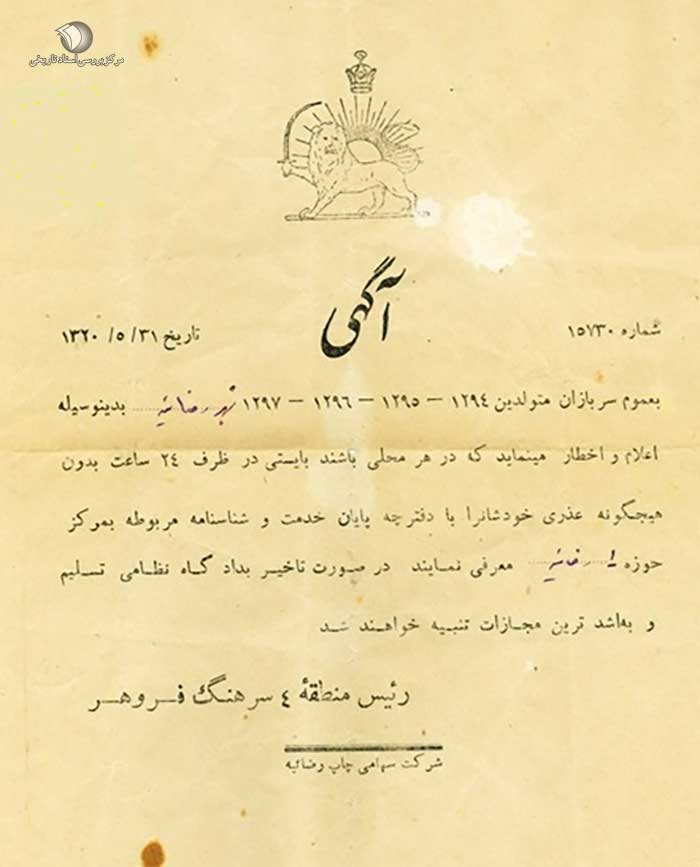 مرکز بررسی اسناد تاریخی
آگهی
شماره ۱۵۷۳۰
تاریخ ۳۱/ ۵/ ۱۳۲۰
بعموم سربازان متولدین ۱۲۹٤ – ۱۲۹۵ – ۱۲۹۶ – ۱۲۹۷ شهر رضائیه بدینوسیله
اعلام و اخطار مینماید که در هر محلی باشند بایستی در ظرف ۲٤ ساعت بدون
هیچگونه عذری خودشانرا با دفترچه پایان خدمت و شناسنامه مربوطه بمرکز
حوزه ۱ رضائیه معرفی نمایند در صورت تاخیر بداد گاه نظامی تسلیم
و به‌اشد ترین مجازات تنبیه خواهند شد
رئیس منطقهٔ ٤ سرهنگ فروهر
شرکت سهامی چاپ رضائیه